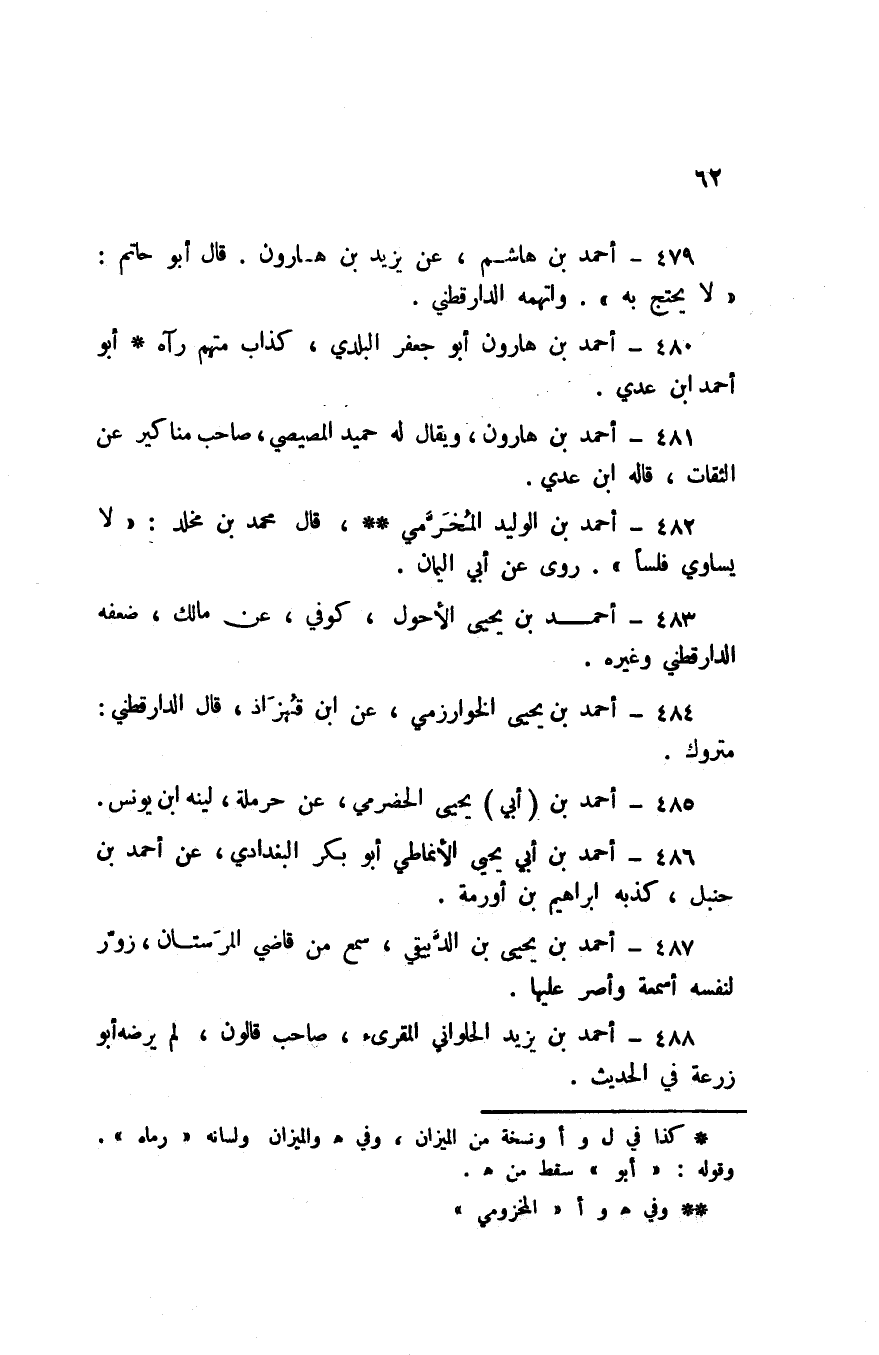 ٦٢
٤٧٩ - أحمد بن هاشم ، عن يزيد بن هارون . قال أبو حاتم :
« لا يحتج به » . واتهمه الدارقطني .
٤٨٠ - أحمد بن هارون أبو جعفر البلدي ، كذاب متهم رآه * أبو
أحمد ابن عدي .
٤٨١ - أحمد بن هارون ، ويقال له حميد المصيصي ، صاحب مناكير عن
الثقات ، قاله ابن عدي .
٤٨٢ - أحمد بن الوليد المُخَرَّمي ** ، قال محمد بن مخلد : « لا
يساوي فلساً » . روى عن أبي اليمان .
٤٨٣ - أحمد بن يحيى الأحول ، كوفي ، عن مالك ، ضعفه
الدارقطني وغيره .
٤٨٤ - أحمد بن يحيى الخوارزمي ، عن ابن قُهزَاذ ، قال الدارقطني :
متروك .
٤٨٥ - أحمد بن ( أبي ) يحيى الحضرمي ، عن حرملة ، لينه ابن يونس .
٤٨٦ - أحمد بن أبي يحيى الأنماطي أبو بكر البغدادي ، عن أحمد بن
حنبل ، كذبه ابراهيم بن أورمة .
٤٨٧ - أحمد بن يحيى بن الدَّبيقي ، سمع من قاضي المرَستان ، زوّر
لنفسه أسمعة وأصر عليها .
٤٨٨ - أحمد بن يزيد الحلواني المقرىء ، صاحب قالون ، لم يرضه أبو
زرعة في الحديث .
* كذا في ل و أ ونسخة من الميزان ، وفي ه والميزان ولسانه « رماه » .
وقوله : « أبو » سقط من ه .
** وفي ه و أ « المخزومي »